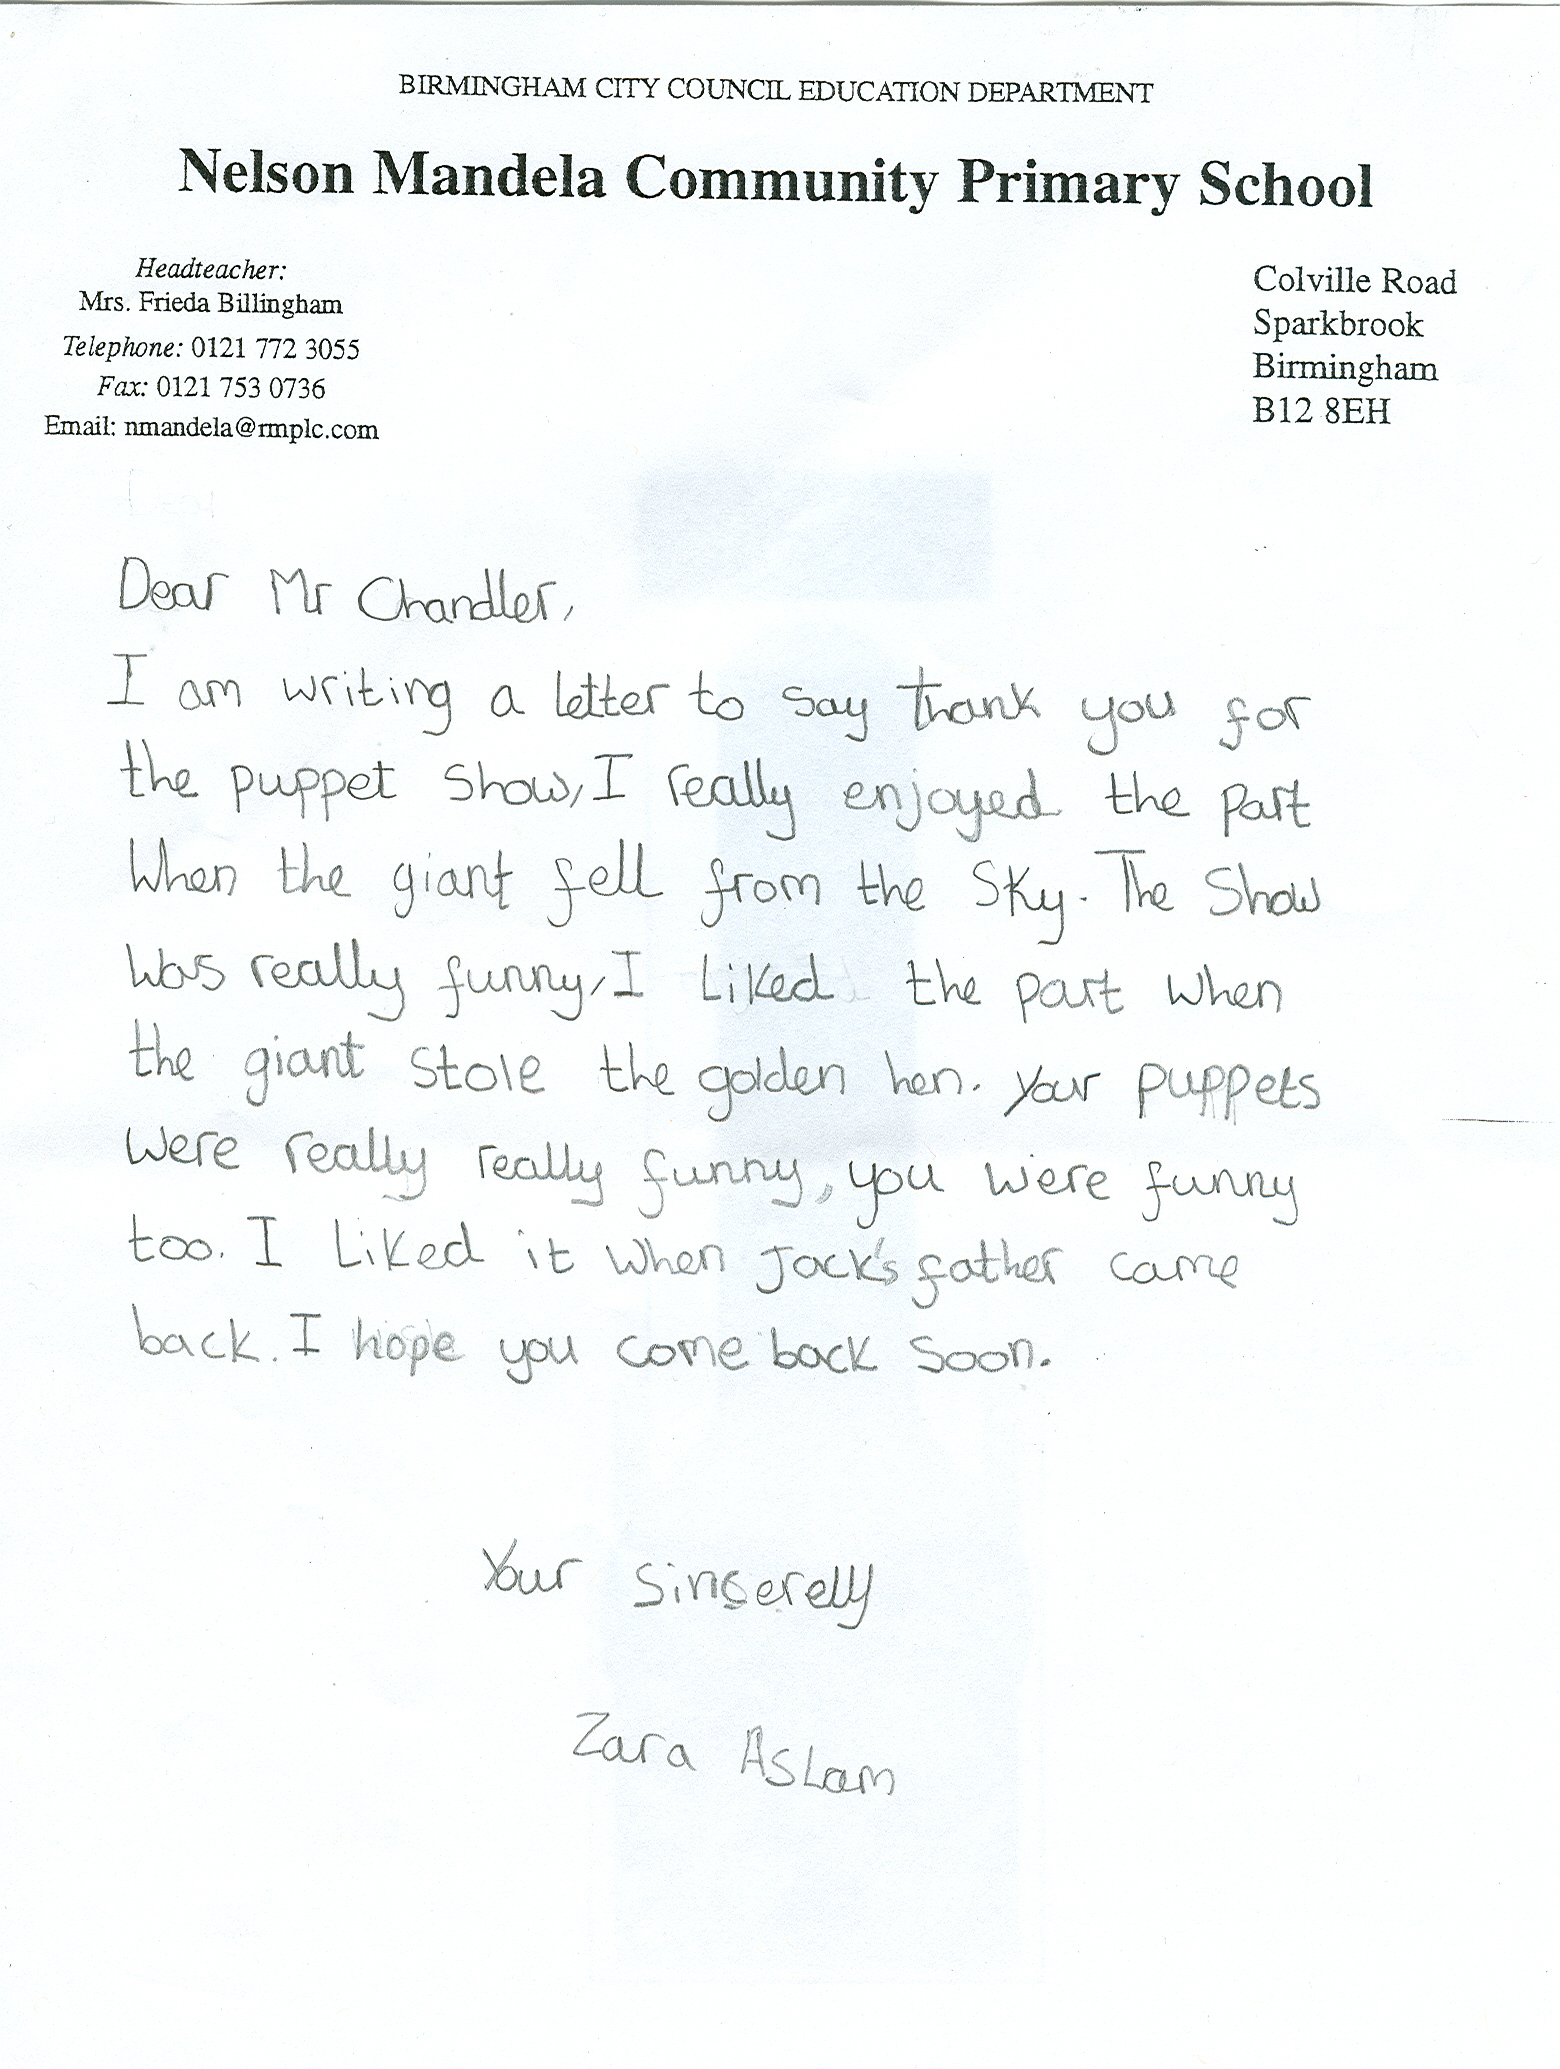 BIRMINGHAM CITY COUNCIL EDUCATION DEPARTMENT
Nelson Mandela Community Primary School
Headteacher:
Mrs. Frieda Billingham
Telephone: 0121 772 3055
Fax: 0121 753 0736
Email: nmandela@rmplc.com
Colville Road
Sparkbrook
Birmingham
B12 8EH
Dear Mr Chandler,
I am writing a letter to say thank you for
the puppet show, I really enjoyed the part
When the giant fell from the Sky. The Show
was really funny, I Liked the part when
the giant stole the golden hen. Your puppets
were really really funny, you were funny
too. I Liked it when Jack's father came
back. I hope you come back soon.
Your Sincerelly
Zara Aslam